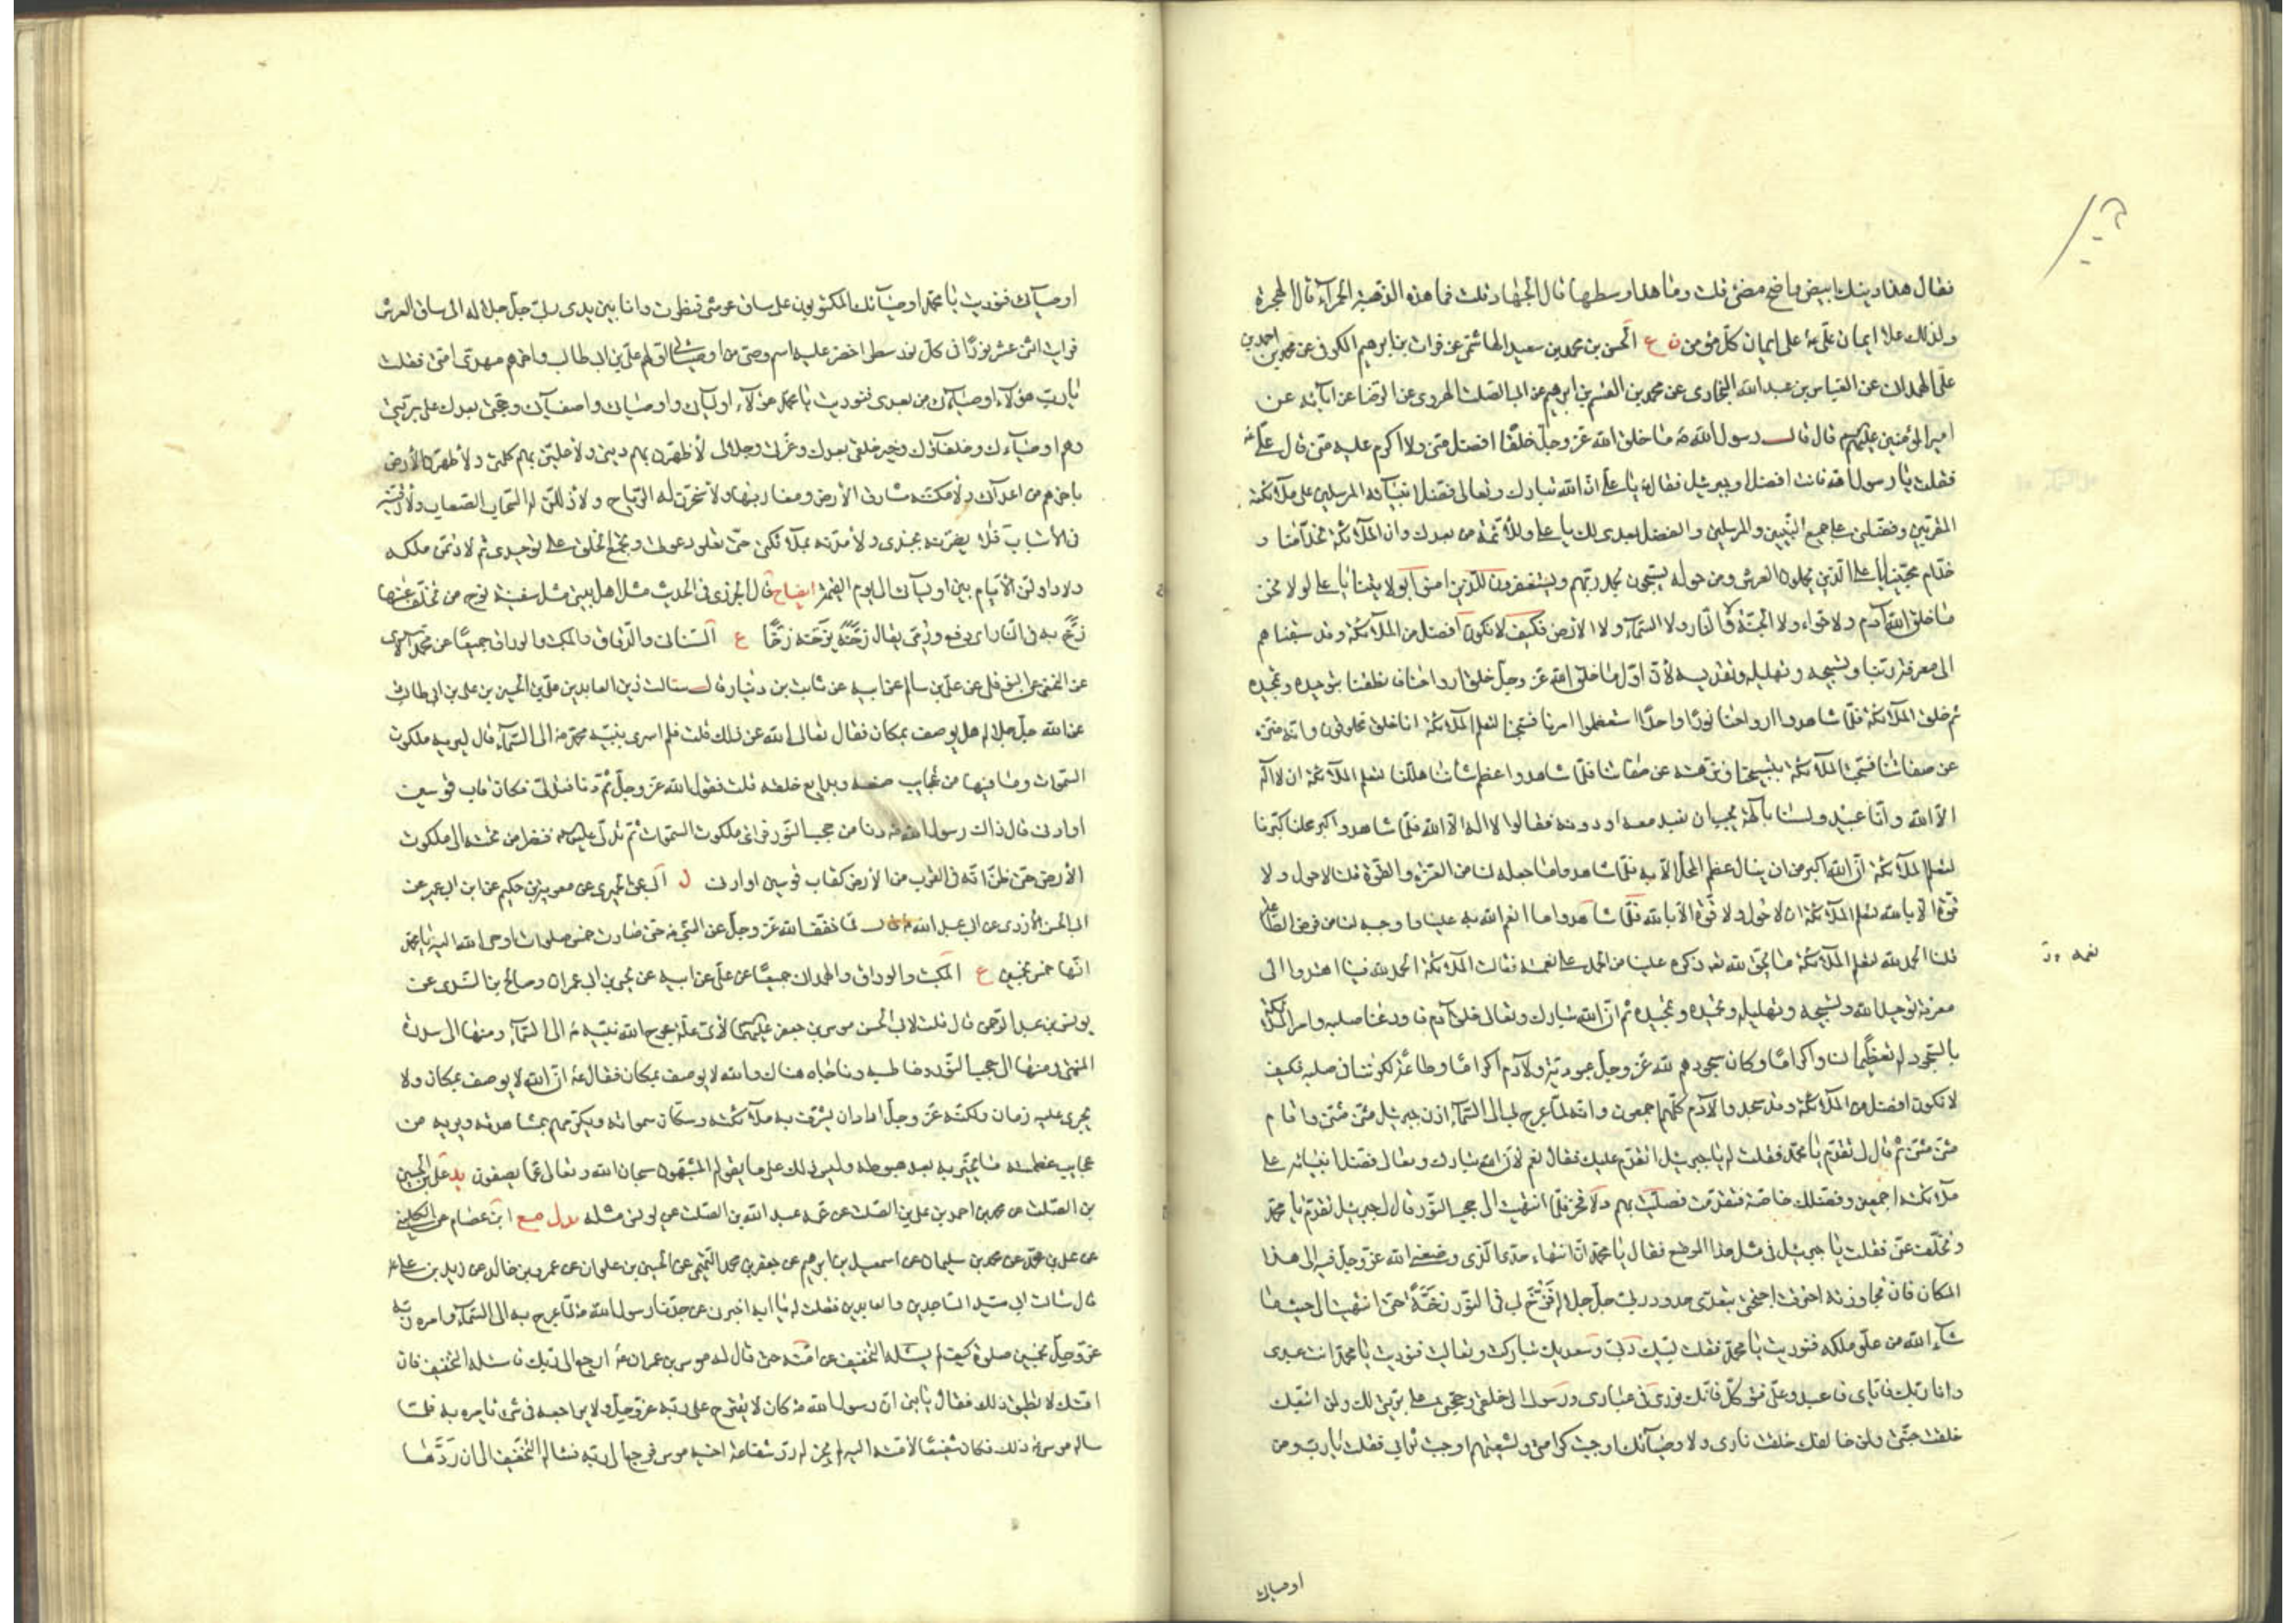 فقال هذا دينك ابيض واضح مضئ قلت وما هذا وسطها قال الجهاد قلت فما هذه الذهبة الحمراء قال الهجرة
ولذلك علا ايمان علي ع على ايمان كل مؤمن ن ع الحسن بن محمد بن سعيد الهاشمي عن فرات بن ابرهيم الكوفي عن محمد بن احمد بن
علي الهمداني عن العباس بن عبد الله البخاري عن محمد بن القسم بن ابرهيم عن ابي الصلت الهروي عن الرضا عن آبائه عن
امير المؤمنين عليهم قال قال رسول الله ص ما خلق الله عز وجل خلقا افضل مني ولا اكرم عليه مني قال علي ع
فقلت يا رسول الله فانت افضل او جبرئيل فقال يا علي ان الله تبارك وتعالى فضل انبيائه المرسلين على ملائكته
المقربين وفضلني على جميع النبيين والمرسلين والفضل بعدي لك يا علي وللأئمة من بعدك وان الملائكة لخدامنا و
خدام محبينا يا علي الذين يحملون العرش ومن حوله يسبحون بحمد ربهم ويستغفرون للذين امنوا بولايتنا يا علي لولا نحن
ما خلق الله آدم ولا حواء ولا الجنة ولا النار ولا السماء ولا الارض فكيف لا نكون افضل من الملائكة وقد سبقناهم
الى معرفة ربنا وتسبيحه وتهليله وتقديسه لأن اول ما خلق الله عز وجل خلق ارواحنا فانطقنا بتوحيده وتمجيده
ثم خلق الملائكة فلما شاهدوا ارواحنا نورا واحدا استعظموا امرنا فسبحنا لتعلم الملائكة انا خلق مخلوقون وانه منزه
عن صفاتنا فسبحت الملائكة بتسبيحنا ونزهته عن صفاتنا فلما شاهدوا عظم شأننا هللنا لتعلم الملائكة ان لا اله
الا الله وانا عبيد ولسنا بآلهة يجب ان نعبد معه او دونه فقالوا لا اله الا الله فلما شاهدوا كبر محلنا كبرنا
لتعلم الملائكة ان الله اكبر من ان ينال عظم المحل الا به فلما شاهدوا ما جعله لنا من العزة والقوة قلنا لا حول ولا
قوة الا بالله لتعلم الملائكة ان لا حول ولا قوة الا بالله فلما شاهدوا ما انعم الله به علينا واوجبه لنا من فرض الطاعة
قلنا الحمد لله لتعلم الملائكة ما يحق لله تعه ذكره علينا من الحمد على نعمته فقالت الملائكة الحمد لله فبنا اهتدوا الى
معرفة توحيد الله وتسبيحه وتهليله وتحميده وتمجيده ثم ان الله تبارك وتعالى خلق آدم فاودعنا صلبه وامر الملائكة
بالسجود له تعظيما لنا واكراما وكان سجودهم لله عز وجل عبودية ولآدم اكراما وطاعة لكوننا في صلبه فكيف
لا نكون افضل من الملائكة وقد سجدوا لآدم كلهم اجمعون وانه لما عرج بي الى السماء اذن جبرئيل مثنى مثنى واقام
مثنى مثنى ثم قال لي تقدم يا محمد فقلت له يا جبرئيل اتقدم عليك فقال نعم لأن الله تبارك وتعالى فضل انبيائه على
ملائكته اجمعين وفضلك خاصة فتقدمت فصليت بهم ولا فخر فلما انتهيت الى حجب النور قال لي جبرئيل تقدم يا محمد
وتخلف عني فقلت يا جبرئيل في مثل هذا الموضع تفارقني فقال يا محمد ان انتهاء حدي الذي وضعني الله عز وجل فيه الى هذا
المكان فان تجاوزته احترقت اجنحتي بتعدي حدود ربي جل جلاله فزخ بي في النور زخة حتى انتهيت الى حيث ما
شاء الله من علو ملكه فنوديت يا محمد فقلت لبيك ربي وسعديك تباركت وتعاليت فنوديت يا محمد انت عبدي
وانا ربك فاياي فاعبد وعلي فتوكل فانك نوري في عبادي ورسولي الى خلقي وحجتي على بريتي لك ولمن اتبعك
خلقت جنتي ولمن خالفك خلقت ناري ولاوصيائك اوجبت كرامتي ولشيعتهم اوجبت ثوابي فقلت يا رب ومن
اوصيائي
نعمه
اوصيائي فنوديت يا محمد اوصيائك المكتوبون على ساق عرشي فنظرت وانا بين يدي ربي جل جلاله الى ساق العرش
فرأيت اثنى عشر نورا في كل نور سطر اخضر عليه اسم وصي من اوصيائي اولهم علي بن ابي طالب واخرهم مهدي امتي فقلت
يا رب هؤلاء اوصيائي من بعدي فنوديت يا محمد هؤلاء اوليائي واوصيائي واصفيائي وحججي بعدك على بريتي
وهم اوصياءك وخلفاؤك وخير خلقي بعدك وعزتي وجلالي لأظهرن بهم ديني ولأعلين بهم كلمتي ولأطهرن الأرض
باخرهم من اعدائي ولأمكننه مشارق الأرض ومغاربها ولأسخرن له الرياح ولأذللن له السحاب الصعاب ولأرقينه
في الأسباب فلأنصرنه بجندي ولأمدنه بملائكتي حتى تعلو دعوتي وتجمع الخلق على توحيدي ثم لأديمن ملكه
ولأداولن الأيام بين اوليائي الى يوم القيمة ايضاح قال الجزري في الحديث مثل اهل بيتي مثل سفينة نوح من تخلف عنها
زخ به في النار اي دفع ورمي يقال زخه يزخه زخا ع السناني والدقاق والمكتب والوراق جميعا عن محمد الاسدي
عن النخعي عن النوفلي عن علي بن سالم عن ابيه عن ثابت بن دينار قال سالت زين العابدين علي بن الحسين بن علي بن ابي طالب
عن الله جل جلاله هل يوصف بمكان فقال تعالى الله عن ذلك قلت فلم اسرى بنبيه محمد ص الى السماء قال ليريه ملكوت
السموات وما فيها من عجايب صنعه وبدايع خلقه قلت فقول الله عز وجل ثم دنا فتدلى فكان قاب قوسين
او ادنى قال ذاك رسول الله ص دنا من حجب النور فرأى ملكوت السموات ثم تدلى ع فنظر من تحته الى ملكوت
الأرض حتى ظن انه في القرب من الأرض كقاب قوسين او ادنى ل ابي عن الحميري عن معوية بن حكيم عن ابن ابي عمير عن
ابي الحسن الأزدي عن ابي عبد الله قال لما خفف الله عز وجل عن النبي ص حتى صارت خمس صلوات اوحى الله اليه يا محمد
انها خمس بخمسين ع المكتب والوراق والهمداني جميعا عن علي عن ابيه عن يحيى بن ابي عمران وصالح بن السندي عن
يونس بن عبد الرحمن قال قلت لابي الحسن موسى بن جعفر عليهما لأي علة عرج الله نبيه ص الى السماء ومنها الى سدرة
المنتهى ومنها الى حجب النور وخاطبه وناجاه هناك والله لا يوصف بمكان فقال ع ان الله لا يوصف بمكان ولا
يجري عليه زمان ولكنه عز وجل اراد ان يشرف به ملائكته وسكان سمواته ويكرمهم بمشاهدته ويريه من
عجايب عظمته ما يخبر به بعد هبوطه وليس ذلك على ما يقوله المشبهون سبحان الله وتعالى عما يصفون يد علي بن الحسين
بن الصلت عن محمد بن احمد بن علي بن الصلت عن عمه عبد الله بن الصلت عن يونس مثله يد ل مع ابن عصام عن الكليني
عن علي بن محمد عن محمد بن سليمان عن اسمعيل بن ابرهيم عن جعفر بن محمد التميمي عن الحسين بن علوان عن عمرو بن خالد عن زيد بن علي ع
قال سالت ابي سيد الساجدين والعابدين فقلت له يا ابه اخبرني عن جدنا رسول الله ص لما عرج به الى السماء وامره ربه
عز وجل بخمسين صلوة كيف لم يسئله التخفيف عن امته حتى قال له موسى بن عمران ع ارجع الى ربك فاسئله التخفيف فان
امتك لا تطيق ذلك فقال يا بني ان رسول الله ص كان لا يقترح على ربه عز وجل ولا يراجعه في شئ يامره به فلما
ساله موسى ع ذلك فكان شفيعا لأمته اليه لم يجز له رد شفاعة اخيه موسى فرجع الى ربه فسئاله التخفيف الى ان ردها